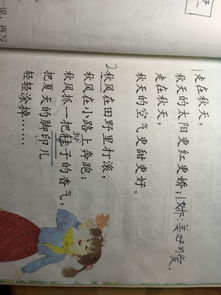 走在秋天,
秋天的太阳更红更娇,
走在秋天,
秋天的空气更甜更好。
2秋风在田野里打滚,
秋风在小路上奔跑;
秋风抓一把桂子的香气,
把夏天的脚印儿
轻轻涂掉……